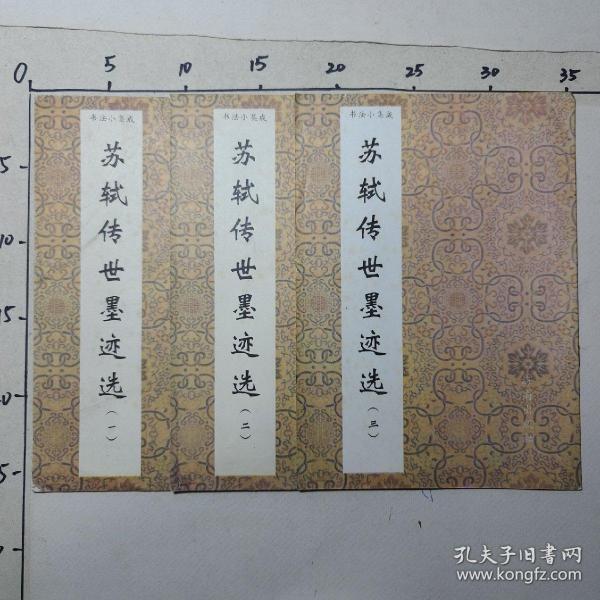 0 5 10 15 20 25 30 35
5
10
15
20
5
书法小集成
苏轼传世墨迹选
（一）
书法小集成
苏轼传世墨迹选
（二）
书法小集成
苏轼传世墨迹选
（三）
孔夫子旧书网
www.kongfz.com